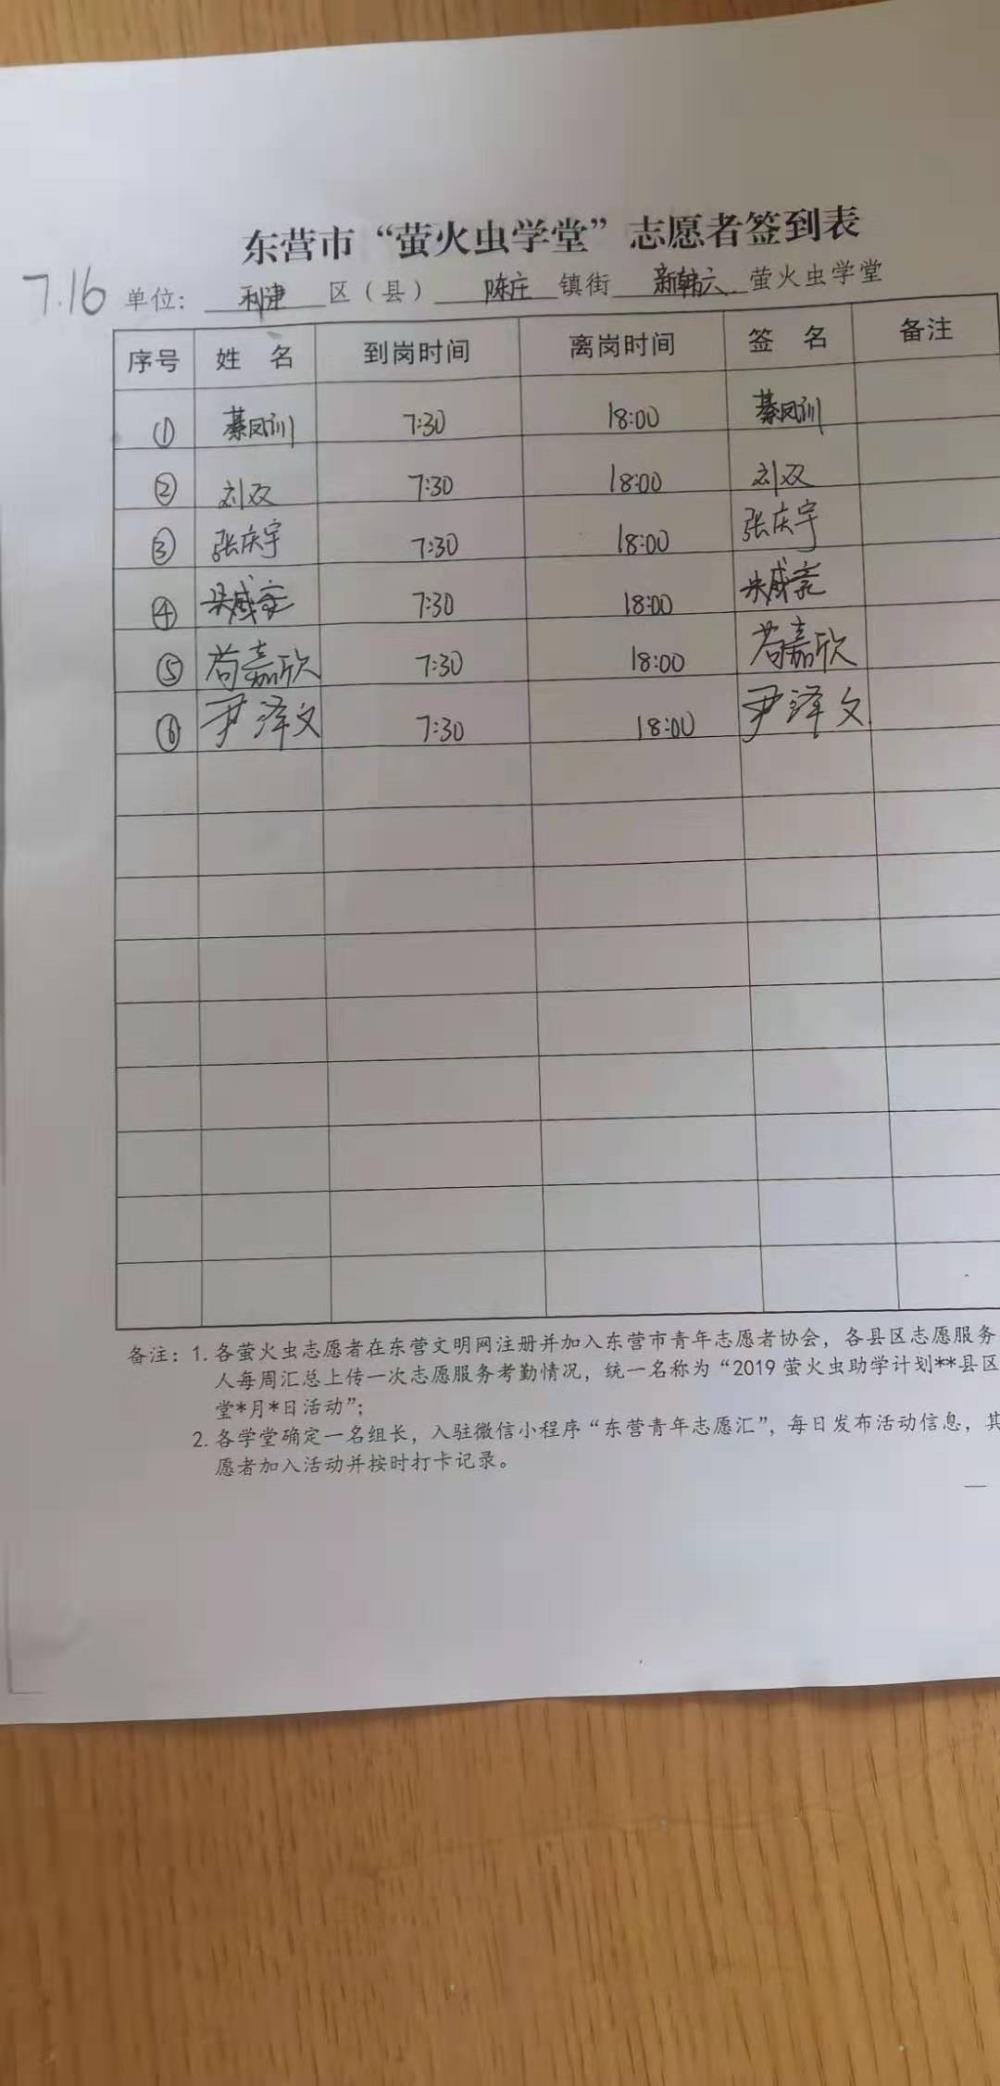 东营市“萤火虫学堂”志愿者签到表
7.16 单位: 利津 区(县) 陈庄 镇街 新韩六 萤火虫学堂
序号 姓 名 到岗时间 离岗时间 签 名 备注
① 綦凤训 7:30 18:00 綦凤训
② 刘双 7:30 18:00 刘双
③ 张庆宇 7:30 18:00 张庆宇
④ 7:30 18:00
⑤ 苟嘉欣 7:30 18:00 苟嘉欣
⑥ 尹泽文 7:30 18:00 尹泽文
备注: 1. 各萤火虫志愿者在东营文明网注册并加入东营市青年志愿者协会, 各县区志愿服务
人每周汇总上传一次志愿服务考勤情况, 统一名称为“2019 萤火虫助学计划**县区
堂*月*日活动”;
2. 各学堂确定一名组长, 入驻微信小程序“东营青年志愿汇”, 每日发布活动信息, 其
愿者加入活动并按时打卡记录。